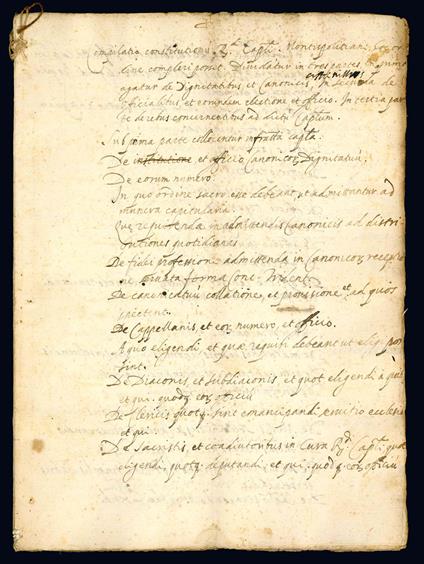 Compilatio constitutionũ R.di Capli Montisregalitani, hoc or
dine compleri poterit. Diuidatur in tres partes. In primo
agatur de Dignitatibus et Canonicis, In secunda de
officialibus et eorundem electione et officio. In tertia par
te de rebus concernentibus ad dictũ Captum.
Sub prima parte collocentur infratta capta.
De institutione et officio Canonicor. Dignitatũ,
De eorum numero.
In quo ordine sacro esse debeant, ut admittantur ad
munera capitularia.
Quae requirenda in admittendis Canonicis ad distri
butiones quotidianas
De fidei professione admittenda in Canonicor. receptio
ne, juxta forma Conc.
De canonicatuũ collatione, et prouisione et ad quos
spectent.
De Cappellanis, et eor. numero, et officio.
A quo eligendi, et quae requisiti debeant ut eligi pos
sint.
De Diaconis, et Subdiaconis, et quot eligendi a quo
et qui. quodq. eor. officiũ
De Clericis quotq. sint emancipandi, seruitio ecclesiae
et qui
De Sacristis, et coadiutoribus in Cura R.di Capli, quo
eligendi, quotq. deputandi, et qui. quodq. eor. officiũ